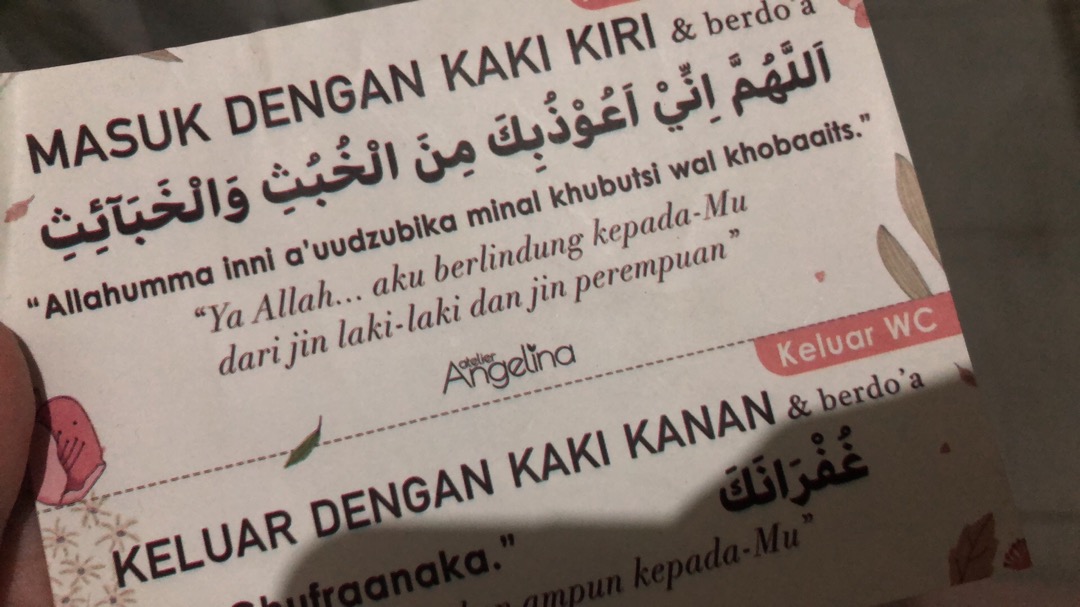 MASUK DENGAN KAKI KIRI & berdo'a
اَللّٰهُمَّ اِنِّيْ اَعُوْذُبِكَ مِنَ الْخُبُثِ وَالْخَبَآئِثِ
“Allahumma inni a'uudzubika minal khubutsi wal khobaaits.”
“Ya Allah... aku berlindung kepada-Mu
dari jin laki-laki dan jin perempuan”
atelier
Angelina
Keluar WC
KELUAR DENGAN KAKI KANAN & berdo'a
غُفْرَانَكَ
Ghufraanaka.”
ampun kepada-Mu”